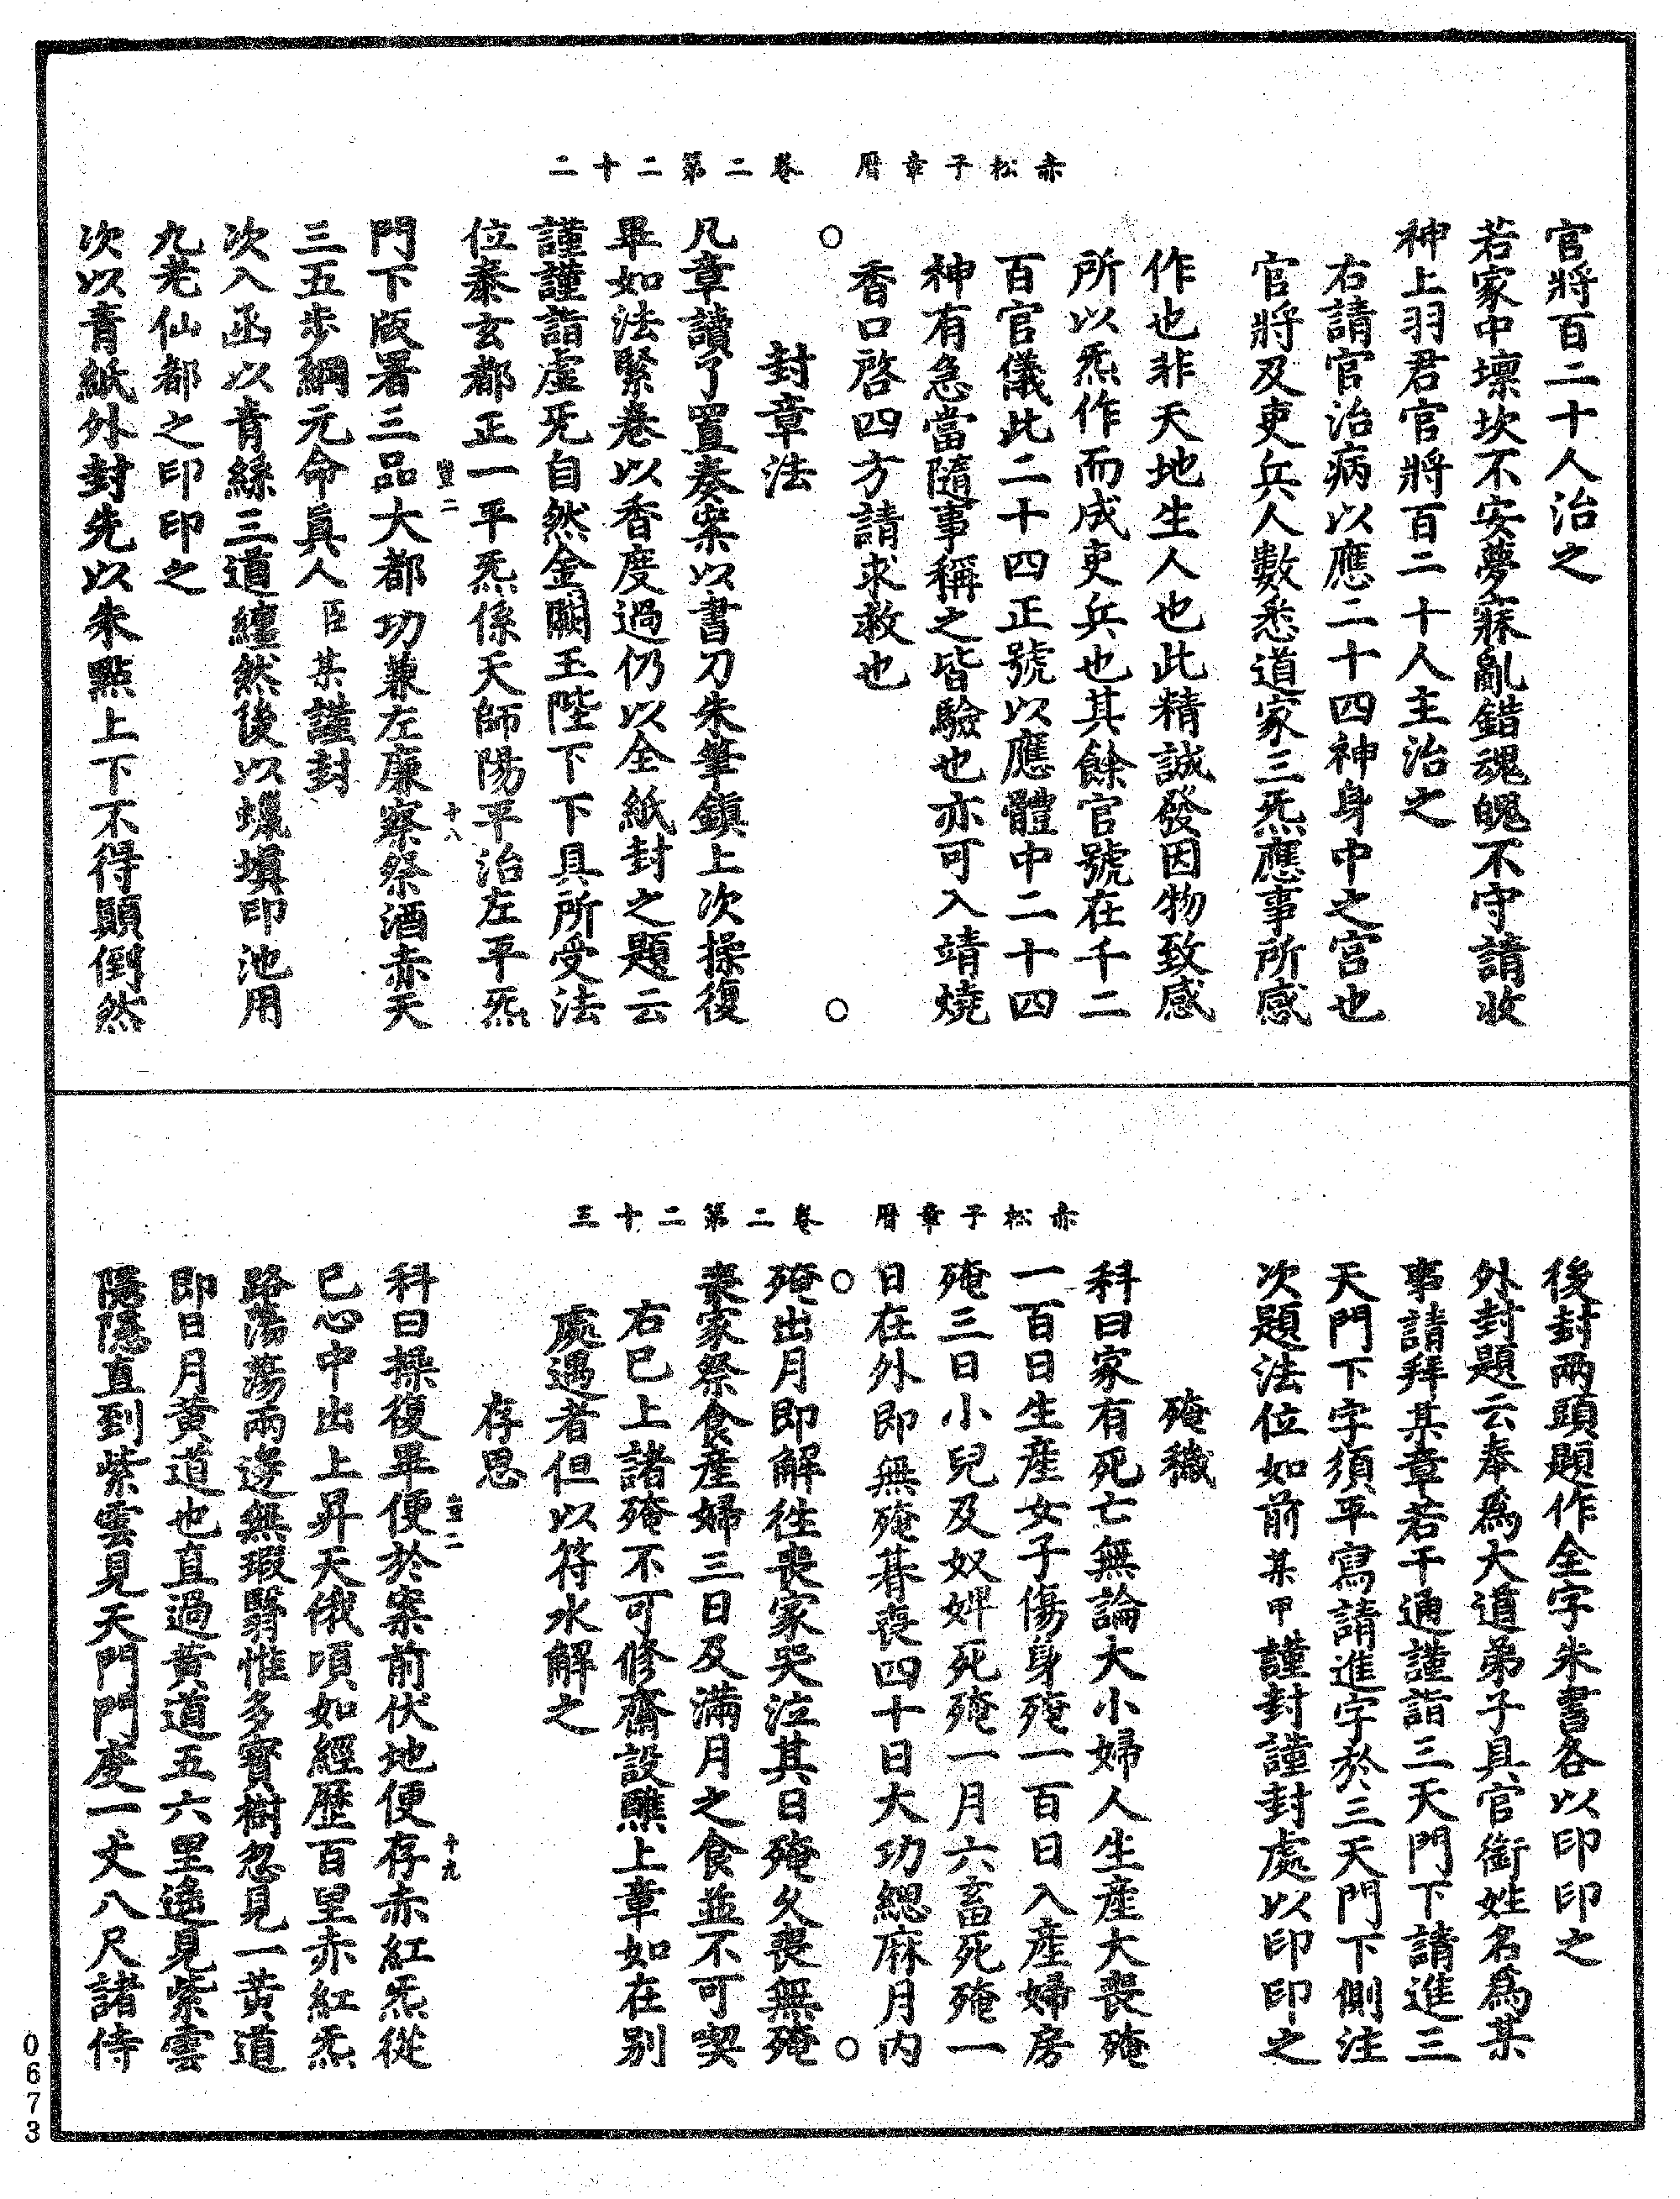 赤松子章曆　卷二第二十二
官將百二十人治之
若家中壇坎不安夢寐亂錯魂魄不守請收
神上羽君官將百二十人主治之
右請官治病以應二十四神身中之宮也
官將及吏兵人數悉道家三炁應事所感
作也非天地生人也此精誠發因物致感
所以炁作而成吏兵也其餘官號在千二
百官儀此二十四正號以應體中二十四
神有急當隨事稱之皆驗也亦可入靖燒
香口啓四方請求救也
封章法
凡章讀了置奏案以書刀朱筆鎮上次操復
畢如法緊卷以香度過仍以全紙封之題云
謹謹詣虛无自然金闕玉陛下下具所受法
位泰玄都正一平炁係天師陽平治左平炁
豈二　十八
門下版署三品大都功兼左廉察祭酒赤天
三五步綱元命眞人臣某謹封
次入函以青絲三道纏然後以蠟塡印池用
九老仙都之印印之
次以青紙外封先以朱點上下不得顚倒然
赤松子章曆　卷二第二十三
後封兩頭題作全字朱書各以印印之
外封題云奉爲大道弟子具官銜姓名爲某
事請拜某章若干通謹詣三天門下請進三
天門下字須平寫請進字於三天門下側注
次題法位如前某甲謹封謹封處以印印之
殗穢
科曰家有死亡無論大小婦人生產大喪殗
一百日生產女子傷身殗一百日入產婦房
殗三日小兒及奴婢死殗一月六畜死殗一
日在外即無殗朞喪四十日大功緦麻月內
殗出月即解往喪家哭泣其日殗久喪無殗
喪家祭食產婦三日及滿月之食並不可喫
右已上諸殗不可修齋設醮上章如在别
處遇者但以符水解之
存思
科曰操復畢便於案前伏地便存赤紅炁從
豈二　十九
已心中出上昇天俄頃如經歷百里赤紅炁
路蕩蕩兩邊無瑕翳惟多寳樹忽見一黄道
即日月黄道也直過黄道五六里遙見紫雲
隱隱直到紫雲見天門門度一丈八尺諸侍
0673